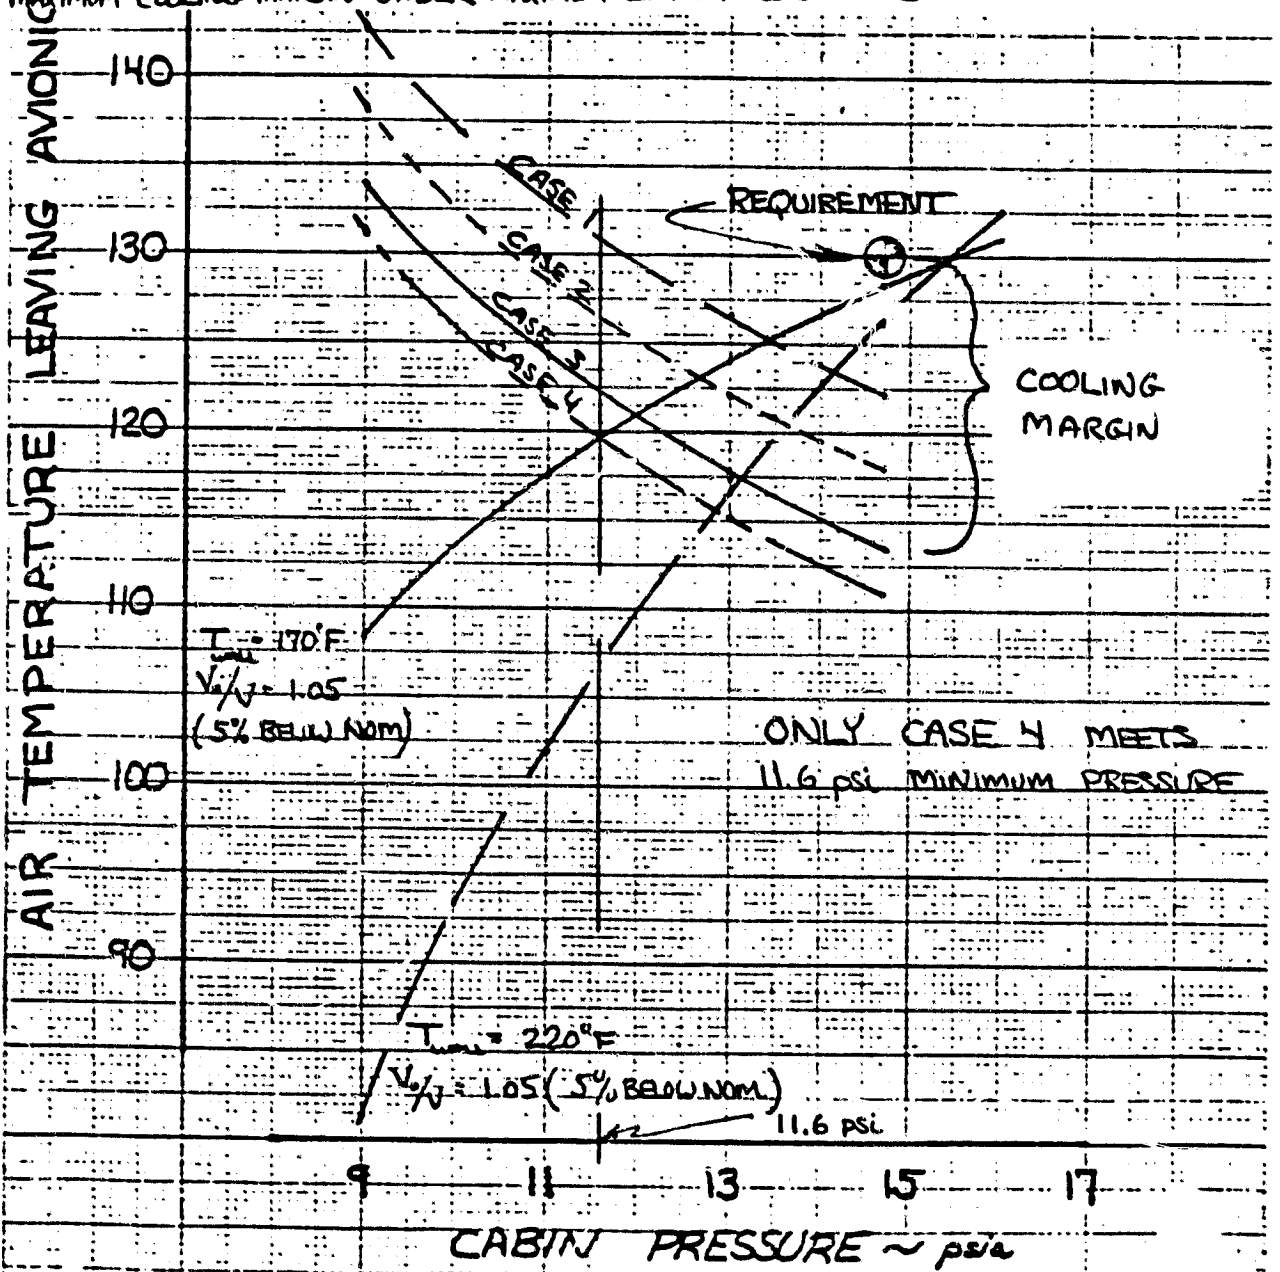 MAXIMUM COOLING MARGIN UNDER
AIR TEMPERATURE LEAVING AVIONIC
140
130
120
110
100
90
CASE 1
CASE 2
CASE 3
CASE 4
REQUIREMENT
COOLING
MARGIN
T wall = 170°F
V₀/V = 1.05
(5% BELOW NOM)
ONLY CASE 4 MEETS
11.6 psi MINIMUM PRESSURE
T wall = 220°F
V₀/V = 1.05 (5% BELOW NOM.)
11.6 psi
9 11 13 15 17
CABIN PRESSURE ~ psia